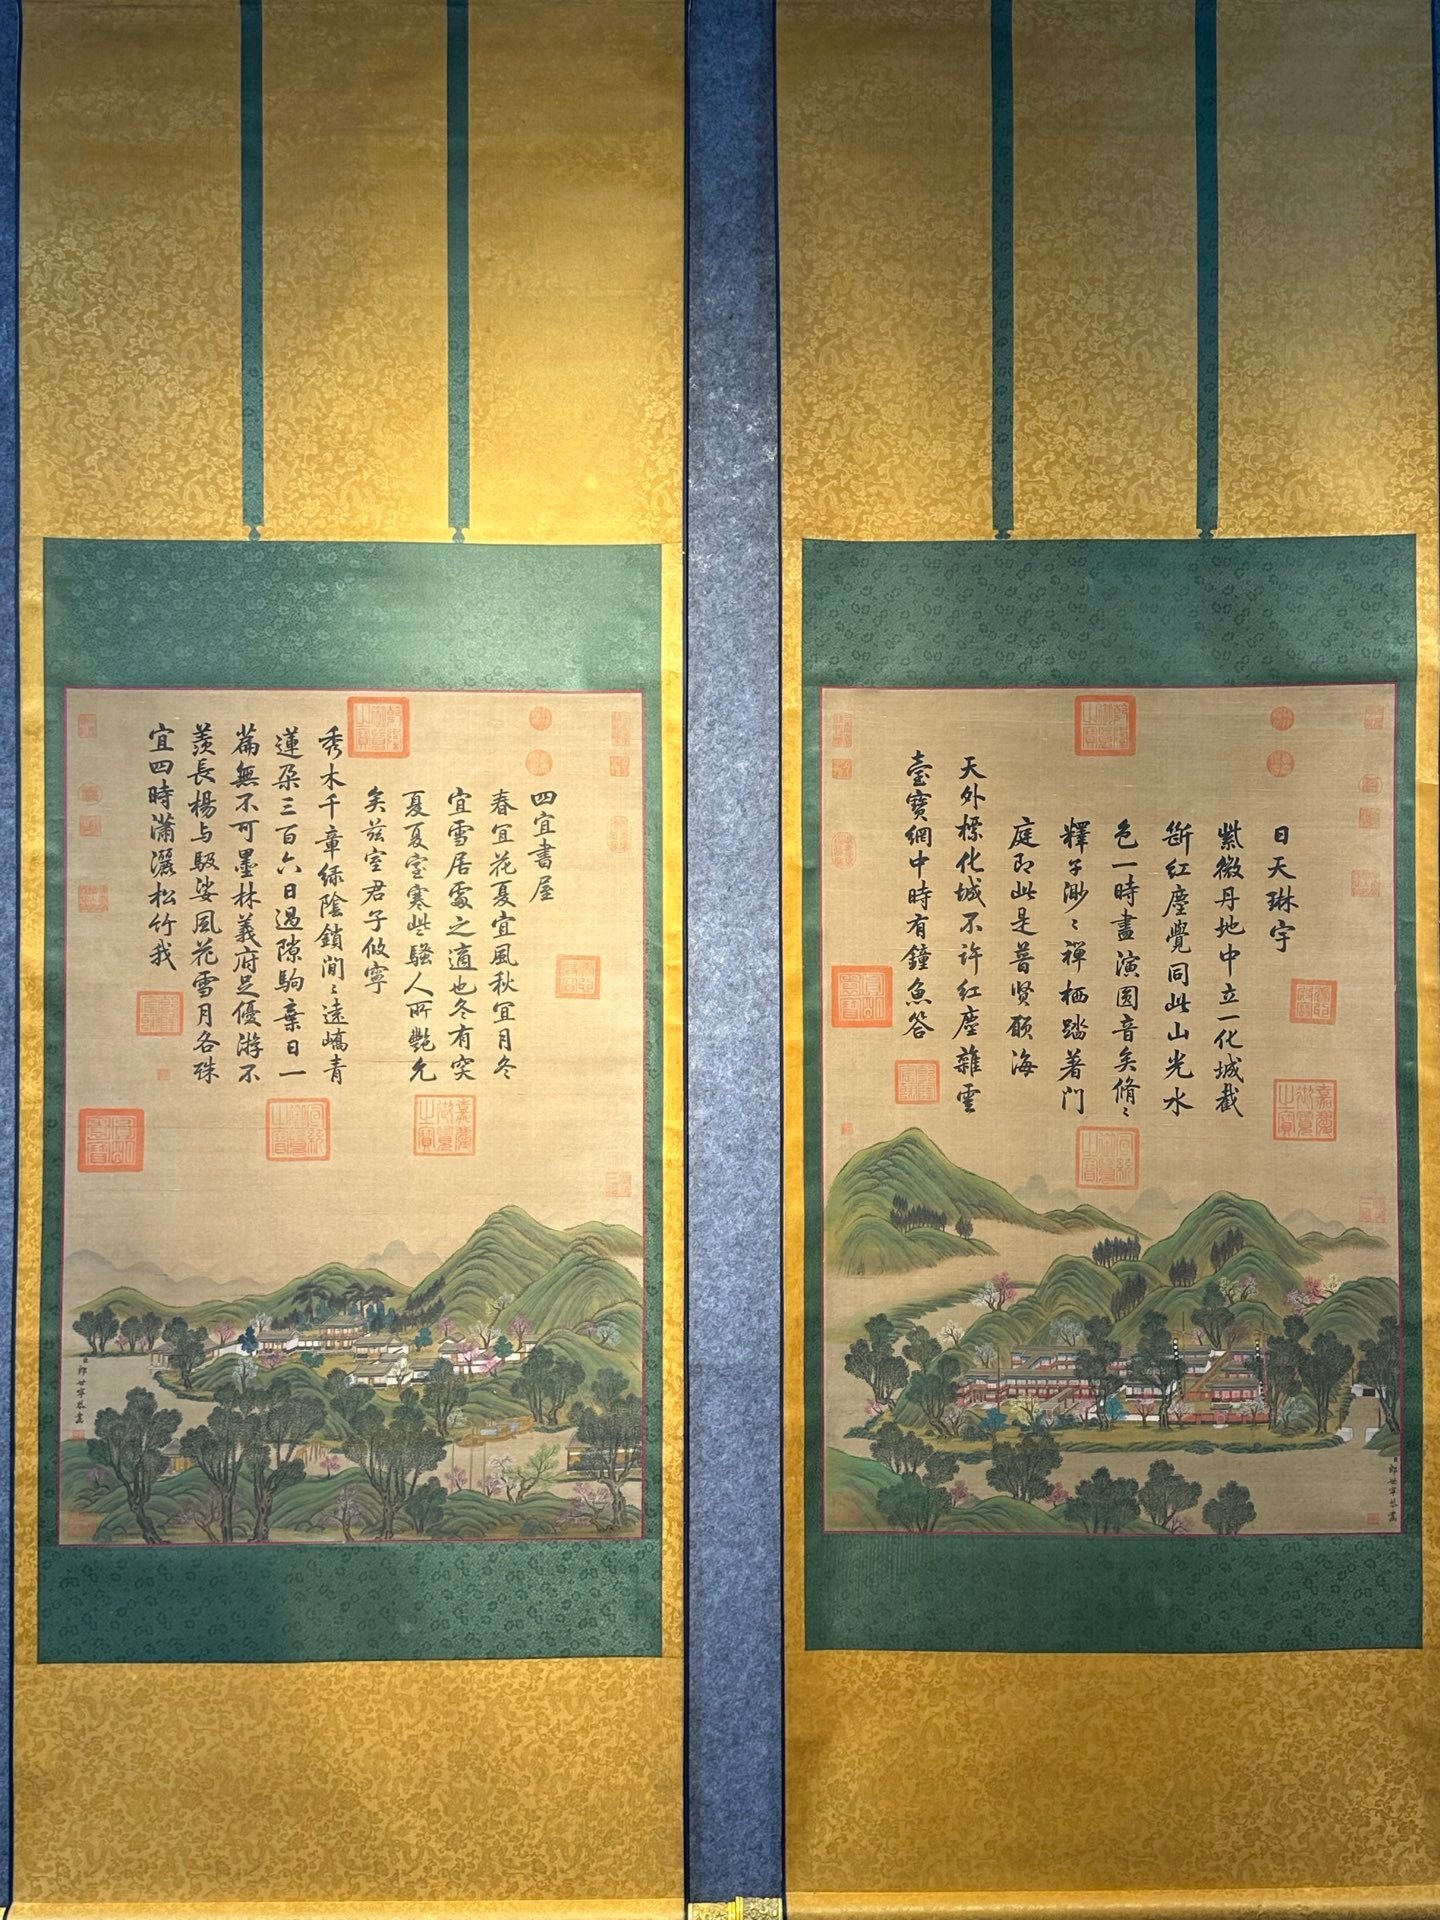 日天琳宇
紫微丹地中立一化城截
斷紅塵覺同此山光水
色一時盡演圆音矣脩〻
釋子渺〻禪栖踏著門
庭即此是普贤願海
天外標化城不許红塵雜雲
臺寶網中時有鐘魚答
臣郎世寧恭畫
四宜書屋
春宜花夏宜風秋宜月冬
宜雪居處之適也冬有突
夏夏室寒些騷人所艷允
矣兹室君子攸寧
秀木千章绿陰鎖間〻遠嶠青
蓮朵三百六日過隙駒棄日一
篇無不可墨林義府足優游不
羡長楊与馺娑風花雪月各殊
宜四時瀟灑松竹我
臣郎世寧恭畫